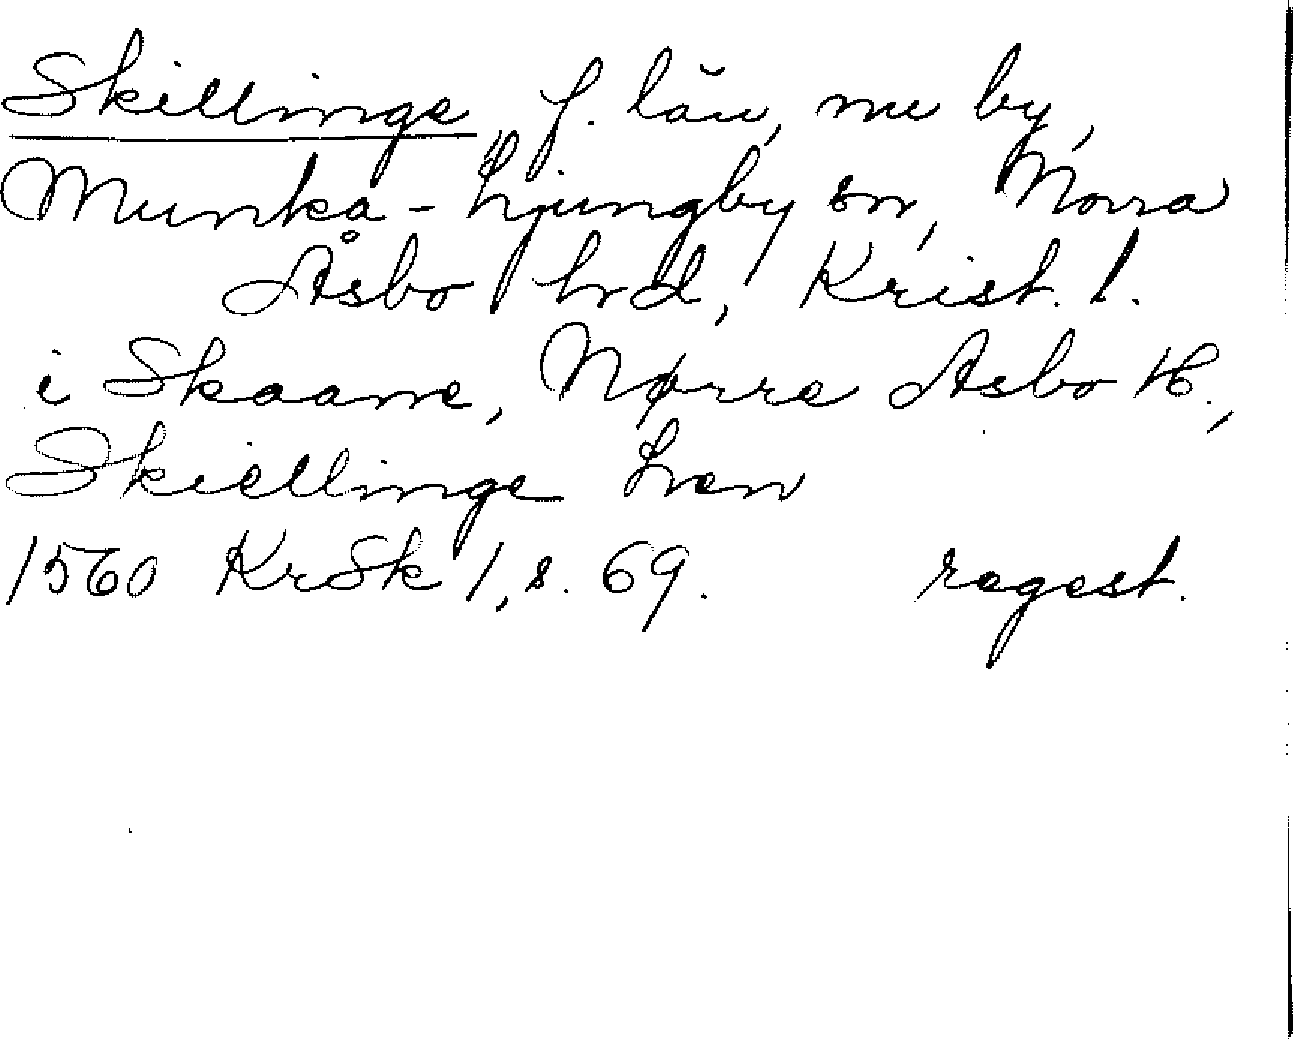 Skillinge, f. län, nu by,
Munka-Ljungby sn, Norra
Åsbo hrd, Krist. l.
i Skaane, Nørre Asbo H.,
Skiellinge Len
1560 KrSk 1, s. 69. regest.